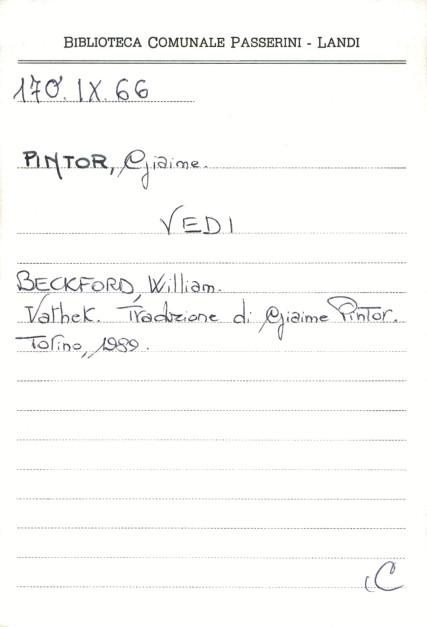 BIBLIOTECA COMUNALE PASSERINI - LANDI
170. IX. 66
PINTOR, Giaime.
VEDI
BECKFORD, William.
Vathek. Traduzione di Giaime Pintor.
Torino, 1989.
C